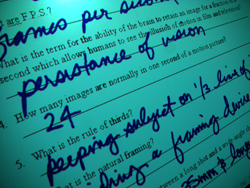 are F.P.S.?
frames per second
What is the term for the ability of the brain to retain an image for a fraction of
second which allows humans to see the illusion of motion in film and television?
persistance of vision
4. How many images are normally in one second of a motion picture?
24
5. What is the rule of thirds?
keeping subject on 1/3 line of
What is the natural framing?
using a framing device
between a long shot and a
35mm